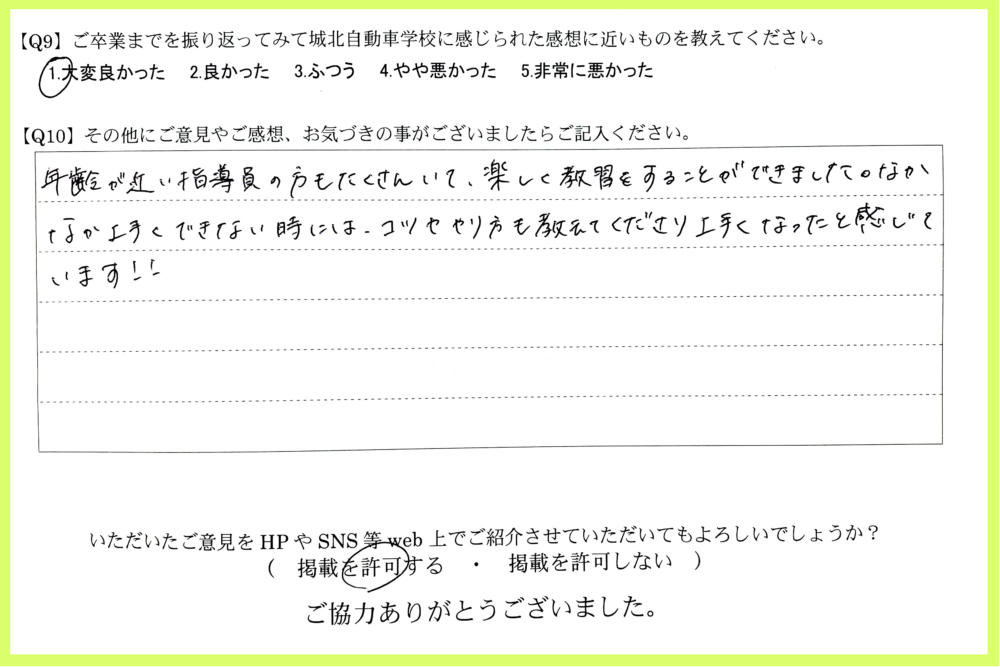 【Q9】ご卒業までを振り返ってみて城北自動車学校に感じられた感想に近いものを教えてください。
1.大変良かった 2.良かった 3.ふつう 4.やや悪かった 5.非常に悪かった
【Q10】その他にご意見やご感想、お気づきの事がございましたらご記入ください。
年齢が近い指導員の方もたくさんいて、楽しく教習をすることができました。なか
なか上手くできない時には、コツややり方も教えてくださり上手くなったと感じて
います!!
いただいたご意見をHPやSNS等web上でご紹介させていただいてもよろしいでしょうか?
( 掲載を許可する ・ 掲載を許可しない )
ご協力ありがとうございました。